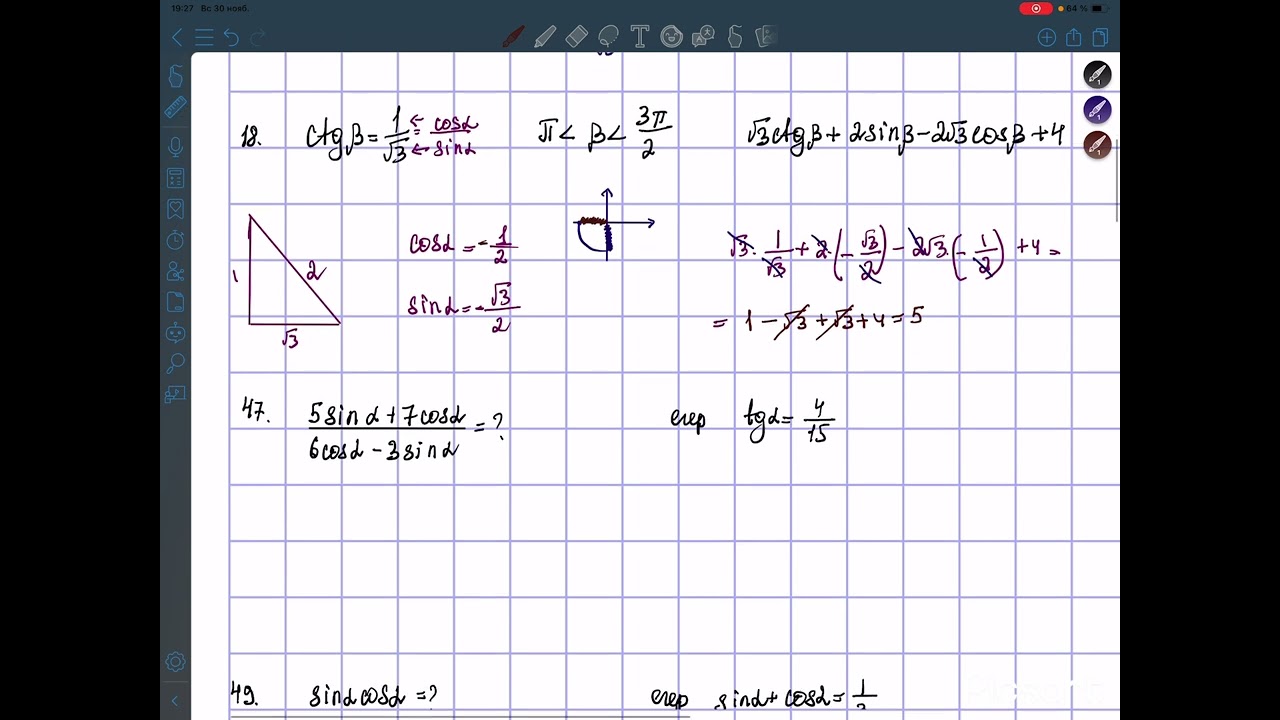 19:27 Вс 30 нояб.
64 %
18. ctgβ = 1/√3 ← = cosα/sinα π < β < 3π/2 √3ctgβ + 2sinβ - 2√3cosβ + 4
1 2 √3
cosα = -1/2
sinα = -√3/2
√3 · 1/√3 + 2 · (-√3/2) - 2√3 · (-1/2) + 4 =
= 1 - √3 + √3 + 4 = 5
47. (5sinα + 7cosα)/(6cosα - 3sinα) = ? егер tgα = 4/15
49. sinαcosα = ? егер sinα + cosα =